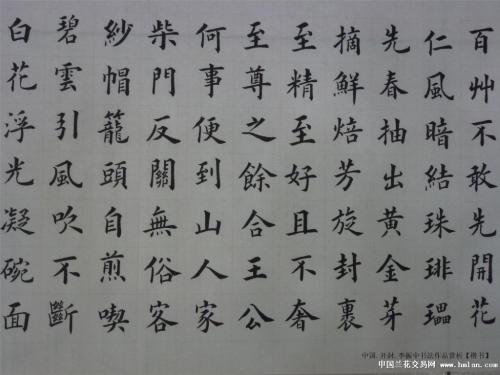 百艸不敢先開花
仁風暗結珠琲瓃
先春抽出黃金芽
摘鮮焙芳旋封裹
至精至好且不奢
至尊之餘合王公
何事便到山人家
柴門反關無俗客
紗帽籠頭自煎喫
碧雲引風吹不斷
白花浮光凝碗面
中国.开封.李振中书法作品赏析【楷书】
中国兰花交易网
www.hmlan.com